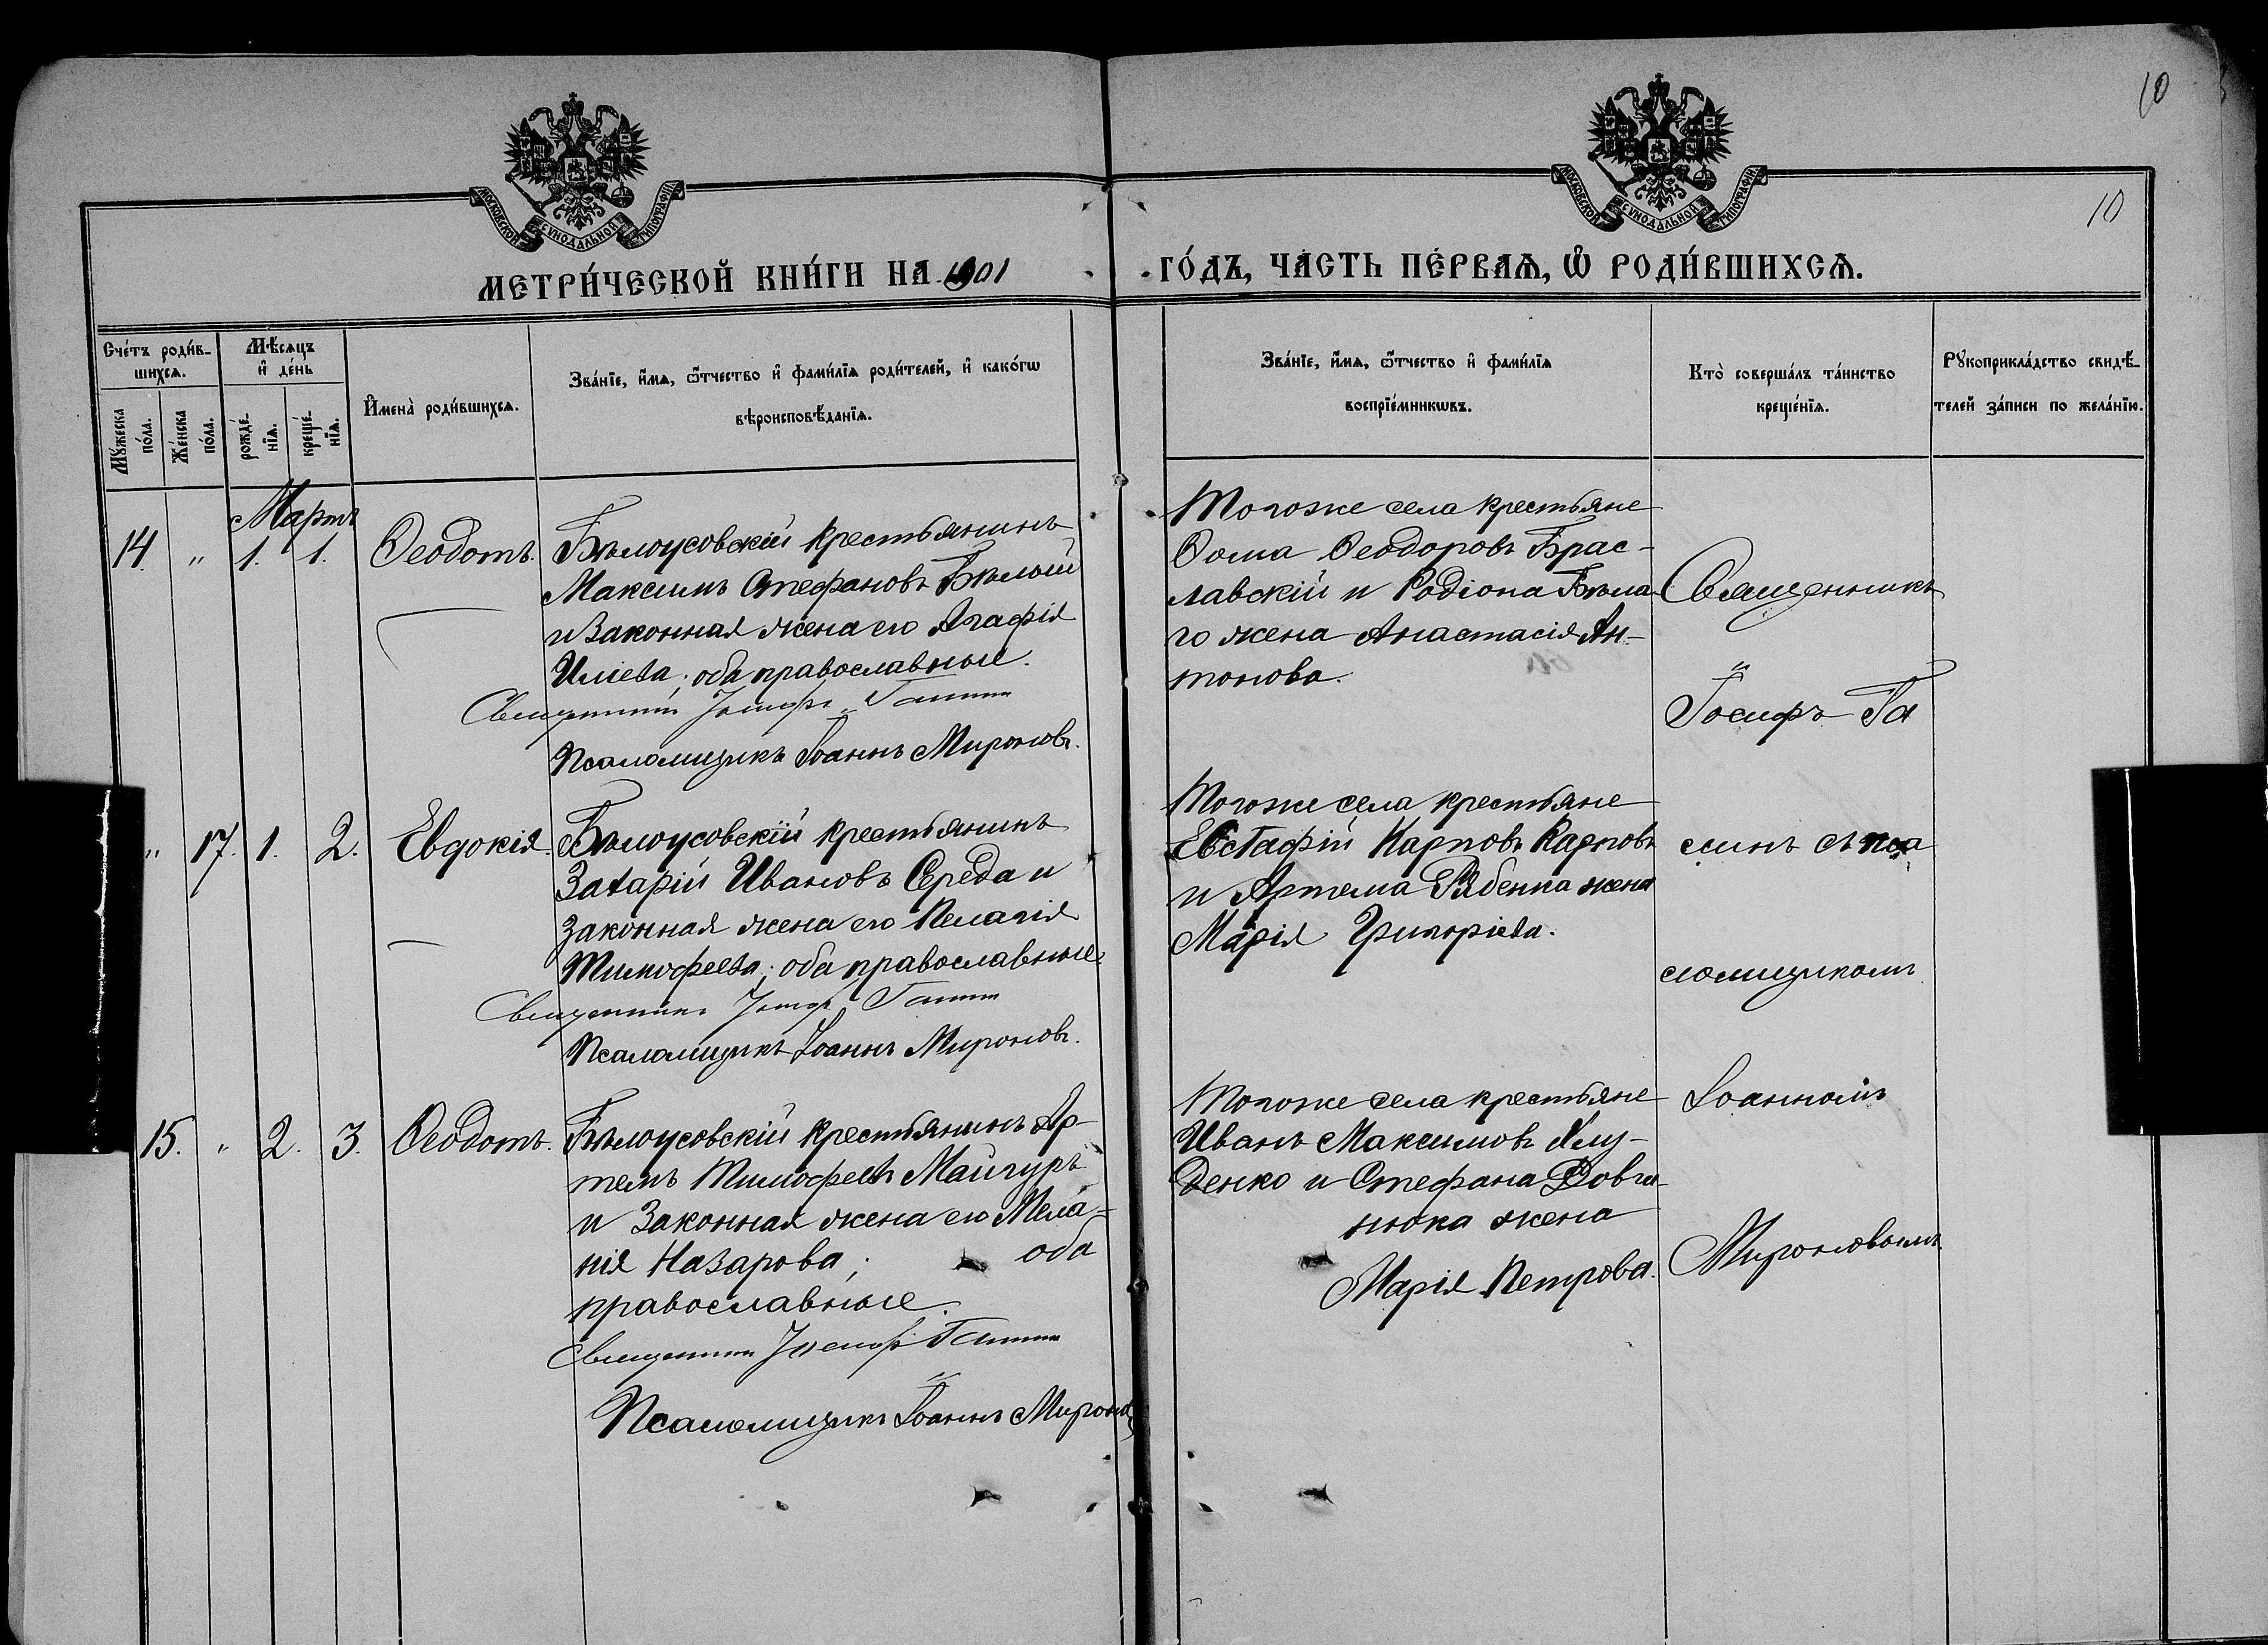 10
10
МОСКОВСКОЙ СѴНОДАЛЬНОЙ ТИПОГРАФІИ
МОСКОВСКОЙ СѴНОДАЛЬНОЙ ТИПОГРАФІИ
МЕТРИ́ЧЕСКОЙ КНИ́ГИ НА 1901
ГО́ДЪ, ЧА́СТЬ ПЕ́РВАѦ, Ѡ҆ РОДИ́ВШИХСѦ.
Сче́тъ роди́в-
шихсѧ.
Мꙋ́жеска
по́ла.
Же́нска
по́ла.
Мѣ́сѧцъ
и҆ де́нь
рожде́-
нїѧ.
креще́-
нїѧ.
И҆мена̀ роди́вшихсѧ.
Зва́нїе, и҆́мѧ, ѻ҆́тчество и҆ фами́лїѧ роди́телей, и҆ како́гѡ
вѣроисповѣ́данїѧ.
Зва́нїе, и҆́мѧ, ѻ҆́тчество и҆ фами́лїѧ
воспрїе́мникѡвъ.
Кто̀ соверша́лъ та́инство
креще́нїѧ.
Рꙋкоприкла́дство свидѣ́-
телей за́писи по жела́нїю.
Мартъ
14. " 1. 1. Ѳеодотъ.
Бѣлоусовскій крестьянинъ
Максимъ Стефановъ Бѣлый
и законная жена его Агафія
Иліева; оба православные.
Священникъ Іосифъ
Псаломщикъ Іоаннъ Мироновъ.
Тогоже села крестьяне
Ѳома Ѳеодоровъ Брас-
лавскій и Родіона Бѣла-
го жена Анастасія Ан-
тонова.
Священникъ
Іосифъ Га
" 17. 1. 2. Евдокія.
Бѣлоусовскій крестьянинъ
Захарій Ивановъ Середа и
законная жена его Пелагія
Тимофеева; оба православные.
Священникъ Іосифъ
Псаломщикъ Іоаннъ Мироновъ.
Тогоже села крестьяне
Евстафій Карповъ Карповъ
и Артема Рябенка жена
Марія Григоріева.
съ пса
ломщикомъ
15. " 2. 3. Ѳеодотъ.
Бѣлоусовскій крестьянинъ Ар-
темъ Тимофеевъ Майгуръ
и законная жена его Мела-
нія Назарова; оба
православные.
Священникъ Іосифъ
Псаломщикъ Іоаннъ Мироновъ
Тогоже села крестьяне
Иванъ Максимовъ
и Стефана
нюка жена
Марія Петрова.
Іоанномъ
Мироновымъ.